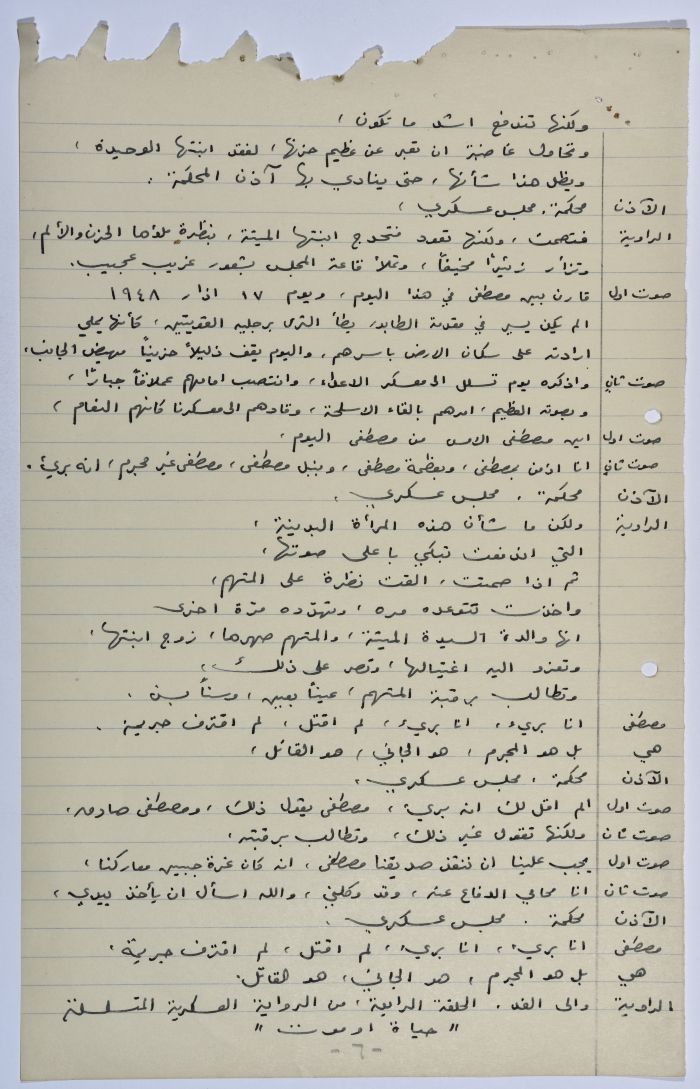 ولكنها تندفع اشد ما تكون ،
وتحاول غاضبة ان تعبر عن عظيم حزنها ، لفقد ابنتها الوحيدة ،
ويظل هذا شأنها ، حتى ينادي بها آذن المحكمة :
الآذن محكمة . مجلس عسكري ،
الراوية فتصمت ، ولكنها تعود فتحدج ابنتها الميتة ، بنظرة ملؤها الحزن والألم ،
وتزأر زئيرًا مخيفاً ، وتملأ قاعة المجلس بشعور غريب عجيب .
صوت اول قارن بين مصطفى في هذا اليوم ، ويوم ١٧ اذار ١٩٤٨
الم يكن يسير في مقدمة الطابور يطأ الثرى برجليه القويتين ، كأنها يملي
ارادته على سكان الارض باسرهم ، واليوم يقف ذليلاً حزيناً مهيض الجانب ،
صوت ثاني واذكره يوم تسلل الى معسكر الاعداء ، وانتصب امامهم عملاقاً جبارًا ،
وبصوته العظيم ، امرهم بالقاء الاسلحة ، وقادهم الى معسكرنا كانهم النعام ،
صوت اول اين مصطفى الامس من مصطفى اليوم ،
صوت ثاني انا اؤمن بمصطفى ، وبعظمة مصطفى ، وبنبل مصطفى ، مصطفى غير مجرم ، انه بريء .
الآذن محكمة . مجلس عسكري .
الراوية ولكن ما شأن هذه المرأة البدينة ،
التي اندفعت تبكي باعلى صوتها ،
ثم اذا صمتت ، القت نظرة على المتهم ،
واخذت تتوعده مره ، وتهدده مرّة اخرى
انها والدة السيدة الميتة ، والمتهم صهرها ، زوج ابنتها ،
وتعزو اليه اغتيالها ، وتصر على ذلك ،
وتطالب برقبة المتهم ، عيناً بعين ، وسناً بسن .
مصطفى انا بريء ، انا بريء ، لم اقتل ، لم اقترف جريمة .
هي بل هو المجرم ، هو الجاني ، هو القاتل ،
الآذن محكمة . مجلس عسكري ،
صوت اول الم اقل لك انه بريء ، مصطفى يقول ذلك ، ومصطفى صادق ،
صوت ثان ولكنها تقول غير ذلك ، وتطالب برقبته .
صوت اول يجب علينا ان ننقذ صديقنا مصطفى ، انه كان غرة جبين معاركنا ،
صوت ثان انا محامي الدفاع عنه ، وقد وكلني ، والله اسأل ان يأخذ بيدي ،
الآذن محكمة . مجلس عسكري .
مصطفى انا بريء ، انا بريء ، لم اقتل ، لم اقترف جريمة .
هي بل هو المجرم ، هو الجاني ، هو القاتل .
الراوية والى الغد . الحلقة الرابعة ، من الرواية العسكرية المتسلسلة
" حياة او موت "
- ٦ -